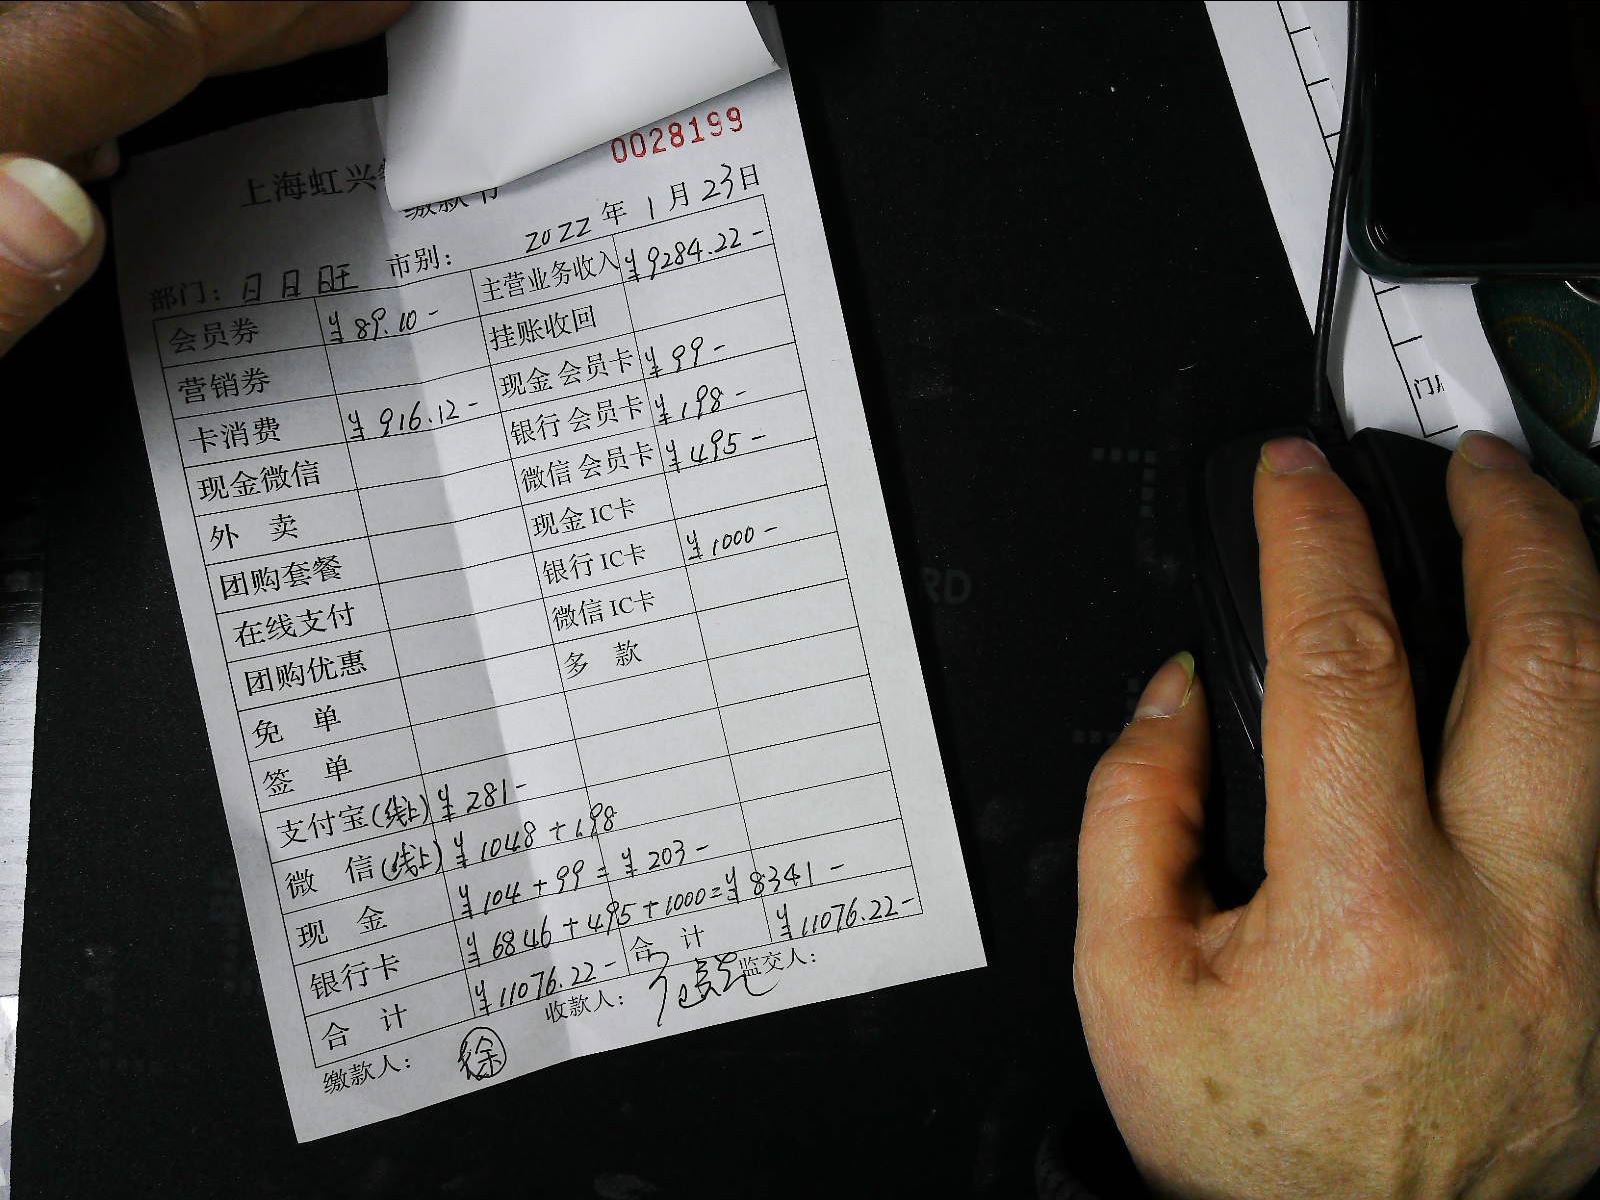 0028199
上海虹兴
缴款书
2022年1月23日
部门：日日旺 市别：
会员券 ¥89.10- 主营业务收入 ¥9284.22-
营销券 挂账收回
卡消费 ¥916.12- 现金会员卡 ¥99-
现金微信 银行会员卡 ¥198-
外 卖 微信会员卡 ¥495-
团购套餐 现金IC卡
在线支付 银行IC卡 ¥1000-
团购优惠 微信IC卡
免 单 多 款
签 单
支付宝(线上) ¥281-
微 信(线上) ¥1048+198
现 金 ¥104+99=¥203-
银行卡 ¥6846+495+1000=¥8341-
合 计 ¥11076.22- 合 计 ¥11076.22-
缴款人：徐 收款人： 监交人：